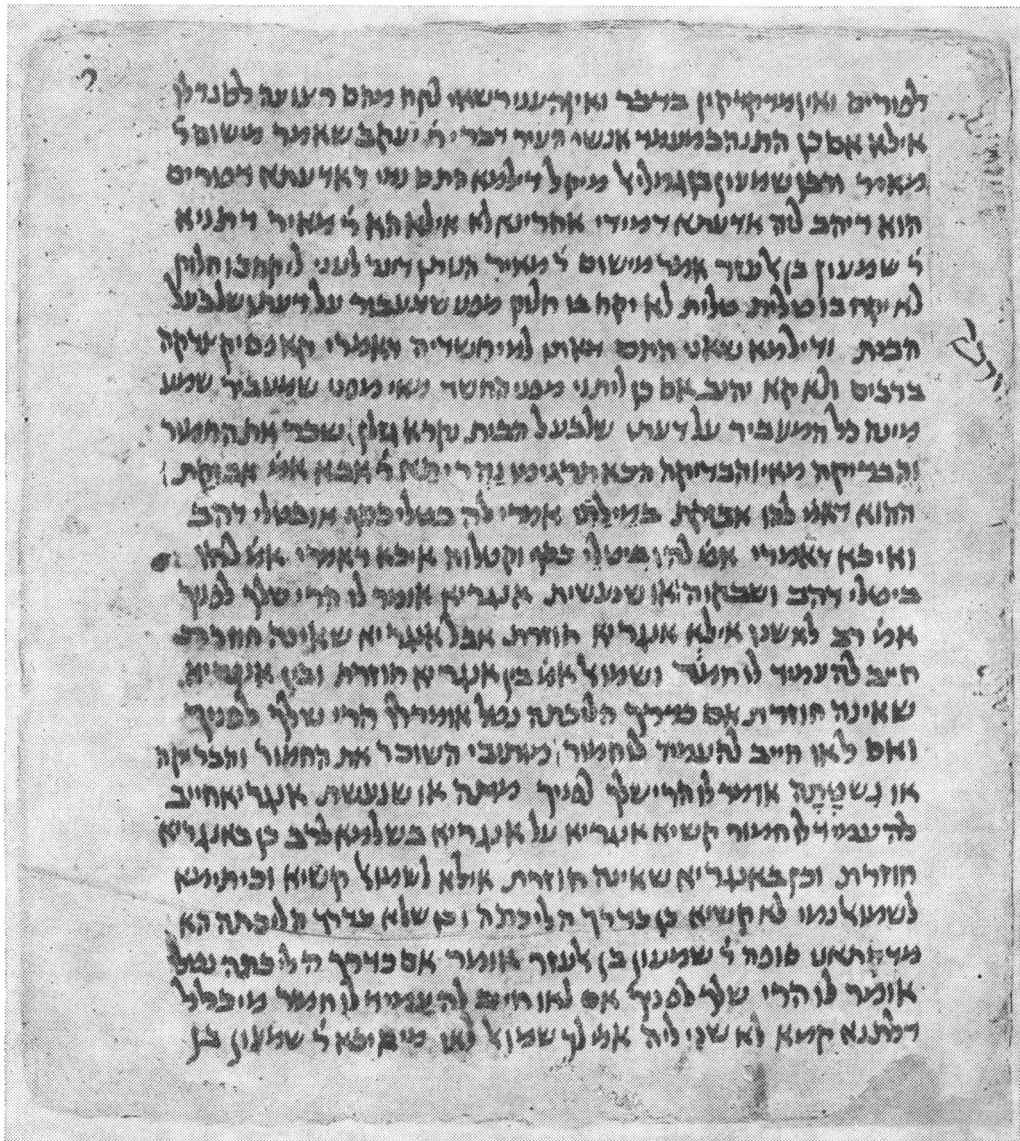 לפורים ואין מדקדקין בדבר ואין העני רשאי ליקח מהם רצועה לסנדלו
אילא אם כן התנה במעמד אנשי העיר דברי ר׳ יעקב שאמר מישום ר׳
מאיר ורבן שמעון בן גמליעל מיקל דילמא התם נמי דאדעתא דפורים
הוא דיהב ליה אדעתא דמידי אחרינא לא אילא הא ר׳ מאיר דתניא
ר׳ שמעון בן לעזר אמר מישום ר׳ מאיר הנותן דינר לעני ליקח בו חלוק
לא יקח בו טלית טלית לא יקח בו חלוק מפני שמעביר על דעתו שלבעל
הבית ודילמא שאני התם דאתו למיחשדיה דאמרי קא מפיק צדקה
ברבים ולא קא יהיב אם כן ליתני מפני החשד מאי מפני שמעביר שמע
מינה כל המעביר על דעתו שלבעל הבית נקרא גזלן שכר את החמור
והבריקה מאי והבריקה הכא תרגימו נהוריתא ר׳ אבא אמ׳ אבזקת
ההוא דאמ׳ להו אבזקת במילתי אמרי ליה בטלי כסף או בטלי דהב
ואיכא דאמרי אמ׳ להו ביטלי כסף וקטלוה איכא דאמרי אמ׳ להו
ביטלי דהב ושבקוה או שנעשית אנגריא אומר לו הרי שלך לפניך
אמ׳ רב לא שנו אילא אנגריא חוזרת אבל אנגריא שאינה חוזרת
חייב להעמיד לו חמור ושמועל אמ׳ בין אנגריא חוזרת ובין אנגריא
שאינה חוזרת אם בדרך הליכתה נטל אומר לו הרי שלך לפניך
ואם לאו חייב להעמיד לו חמור מתיבי השוכר את החמור והבריקה
או נשטתה אומר לו הרי שלך לפניך מיתה או שנעשת אנגריא חייב
להעמיד לו חמור קשיא אנגריא על אנגריא בשלמא לרב כן באנגריא
חוזרת וכן באנגריא שאינה חוזרת אילא לשמועל קשיא וכי תימא
לשמועל נמי לא קשיא כן בדרך הליכתה וכן שלא בדרך הליכתה הא
מדקתאני סופה ר׳ שמעון בן לעזר אומר אם בדרך הליכתה נטל
אומר לו הרי שלך לפניך אם לאו חייב להעמיד לו חמור מיכלל
דלתנא קמא לא שני ליה אמ׳ לך שמועל לאו מי איכא ר׳ שמעון בן